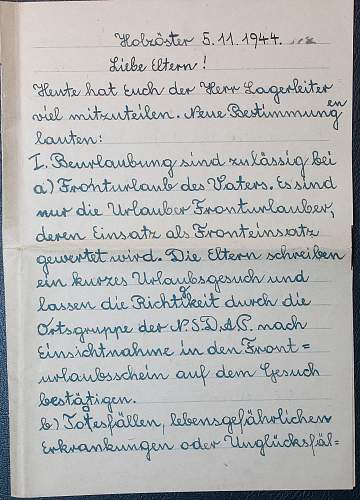 Holzöster 5.11.1944.
Liebe Eltern!
Heute hat Euch der Herr Lagerleiter
viel mitzuteilen. Neue Bestimmungen
lauten:
I. Beurlaubung sind zulässig bei
a) Fronturlaub des Vaters. Es sind
nur die Urlauber Fronturlauber,
deren Einsatz als Fronteinsatz
gewertet wird. Die Eltern schreiben
ein kurzes Urlaubsgesuch und
lassen die Richtigkeit durch die
Ortsgruppe der N.S.D.A.P. nach
Einsichtnahme in den Front=
urlaubsschein auf dem Gesuch
bestätigen.
b) Totesfällen, lebensgefährlichen
Erkrankungen oder Unglücksfäl=